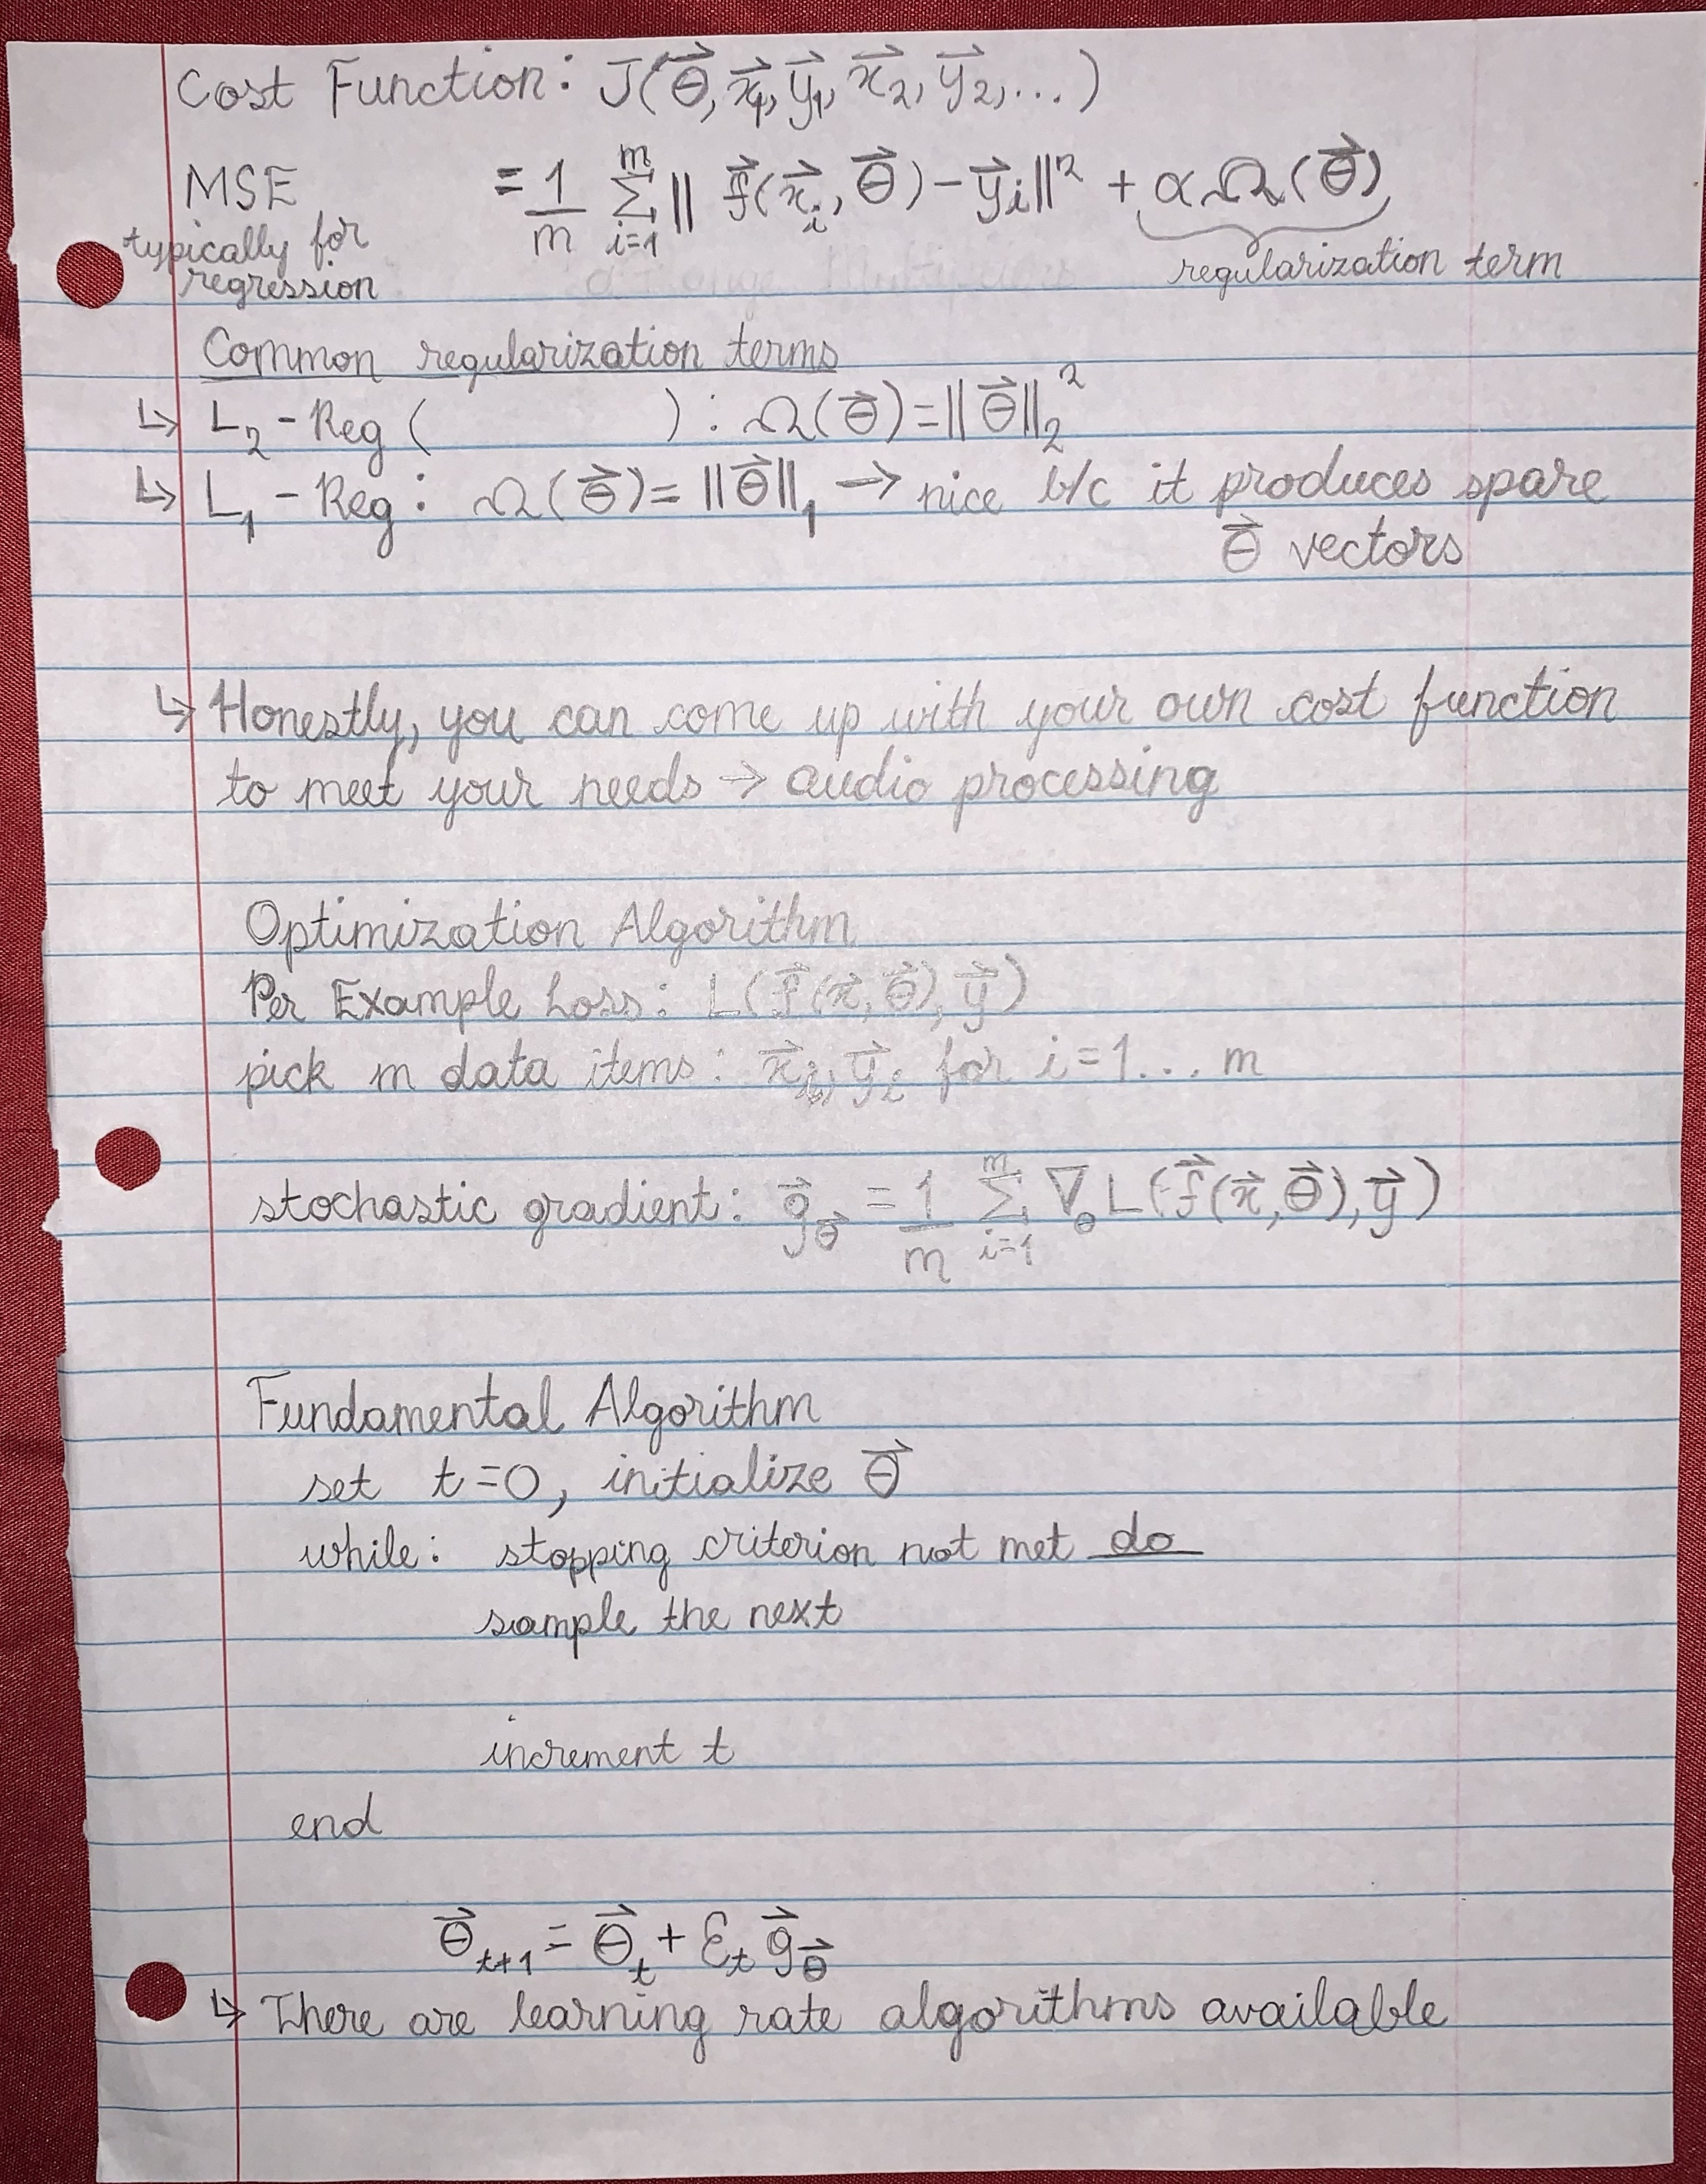 Cost Function: J(θ⃗, x⃗₁, y⃗₁, x⃗₂, y⃗₂, ...)
MSE = 1/m Σᵢ₌₁ᵐ ‖ f⃗(x⃗ᵢ, θ⃗) - y⃗ᵢ‖² + αΩ(θ⃗)
typically for
regression
regularization term
Common regularization terms
↳ L₂ - Reg ( ) : Ω(θ⃗) = ‖θ⃗‖₂²
↳ L₁ - Reg : Ω(θ⃗) = ‖θ⃗‖₁ → nice b/c it produces spare
θ⃗ vectors
↳ Honestly, you can come up with your own cost function
to meet your needs → audio processing
Optimization Algorithm
Per Example Loss: L(f⃗(x⃗, θ⃗), y⃗)
pick m data items: x⃗ᵢ, y⃗ᵢ for i=1... m
stochastic gradient: g⃗_θ⃗ = 1/m Σᵢ₌₁ᵐ ∇_θ L(f⃗(x⃗, θ⃗), y⃗)
Fundamental Algorithm
set t=0, initialize θ⃗
while: stopping criterion not met do
sample the next
increment t
end
θ⃗ₜ₊₁ = θ⃗ₜ + Ɛₜ g⃗_θ⃗
↳ There are learning rate algorithms available